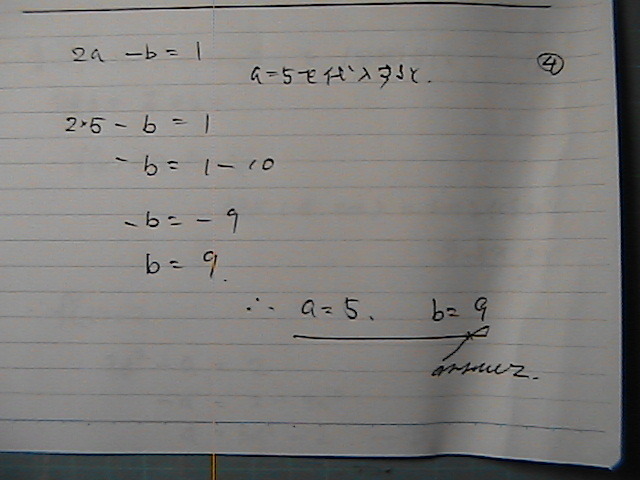 2a - b = 1
④
a=5を代入すると.
2×5 - b = 1
- b = 1 - 10
- b = - 9
b = 9.
∴ a = 5. b = 9
answer.